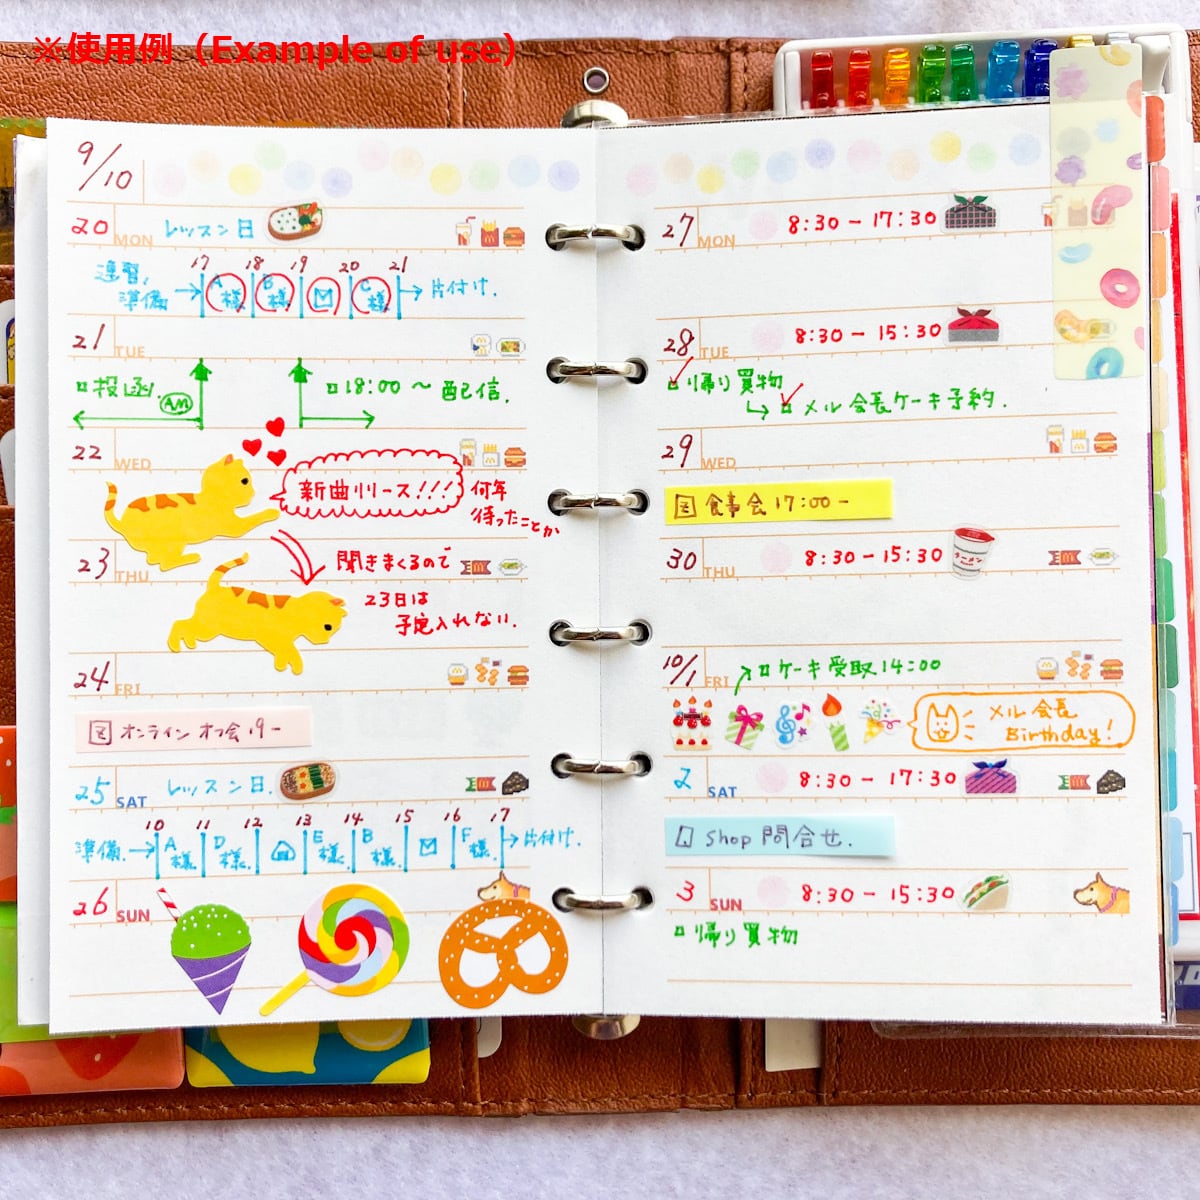 ※使用例（Example of use）
9/10
20 MON レッスン日
17 18 19 20 21
練習、
準備 A様 B様 C様 片付け.
21 TUE
投函 AM
18:00〜 配信.
22 WED
新曲リリース!!!
何年
待ったことか
23 THU
聞きまくるので
23日は
予定入れない.
24 FRI
オンラインオフ会 19-
25 SAT レッスン日.
10 11 12 13 14 15 16 17
準備. A様 D様 E様 B様 F様 片付け.
26 SUN
27 MON 8:30-17:30
28 TUE 8:30-15:30
帰り買物
メル会長ケーキ予約.
29 WED
食事会 17:00-
30 THU 8:30-15:30
ラーメン
10/1 FRI ケーキ受取 14:00
メル会長
Birthday!
2 SAT 8:30-17:30
Shop 問合せ.
3 SUN 8:30-15:30
帰り買物